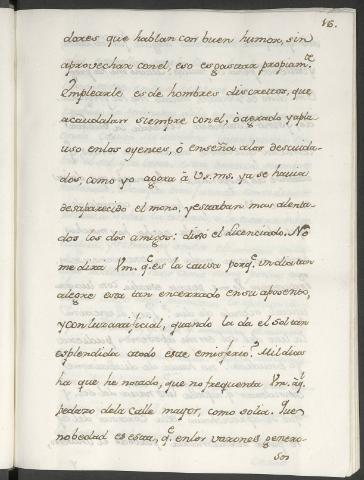 16.
dores que hablan con buen humor, sin
aprovechar con el, eso es gastarar propiam.te
Emplearle es de hombres discrettos, que
acaudalan siempre con el, ò agrado y apla
uso en los oyentes, ò enseña a los descuida-
dos, como yo agora à Vs.ms. ya se havia
desaparecido el mono, y estavan mas alenta-
dos los dos amigos: dixo el Licenciado. No
me dirà Vm. q.e es la causa porq.e Un dia tan
alegre esta tan encerrado en su aposento,
y con luz artificial, quando la da el Sol tan
esplendida atodo este emisferio? Mil dias
ha que he notado, que no frequenta Vm. aq.l
pedazo de la Calle mayor, como solia. Que
nobedad es esta, q.e en los varones genero-
sos